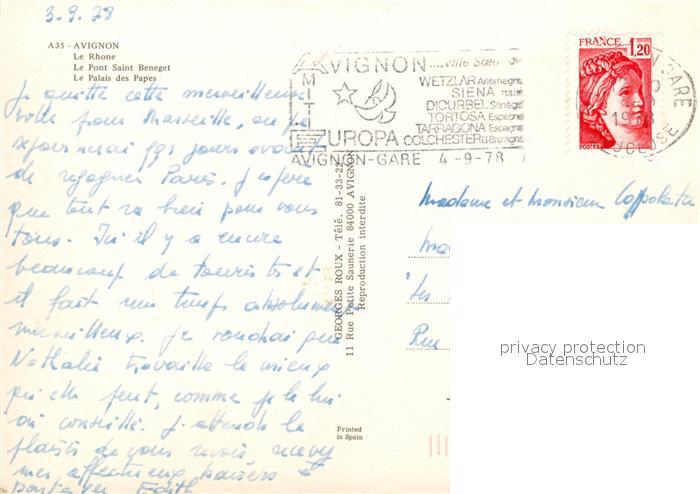 3.9.78
A35 - AVIGNON
Le Rhone
Le Pont Saint Beneget
Le Palais des Papes
Je quitte cette merveilleuse
ville pour Marseille où je
séjournerai qqs jours avant
de regagner Paris. J'espère
que tout va bien pour vous
tous. Ici il y a encore
beaucoup de touristes et
il fait un temps absolument
merveilleux. Je voudrai que
Nathalie travaille le mieux
qu'elle peut, comme je le lui
ai conseillé. J'attends le
plaisir de vous revoir, recevez
mes affectueux baisers
partagés Edith
AVIGNON ....ville Sœur de
WETZLAR Allemagne
SIENA Italie
DIOURBEL Sénégal
TORTOSA Espagne
TARRAGONA Espagne
COLCHESTER G.Bretagne
AMITIE
EUROPA
AVIGNON-GARE 4-9-78
FRANCE 1,20
POSTES
GARE
1978
VAUCLUSE
GEORGES ROUX - Télé. 81-33-22
11 Rue Petite Saunerie 84000 AVIGNON
Reproduction interdite
Printed
in Spain
Madame et Monsieur
Rue
privacy protection
Datenschutz